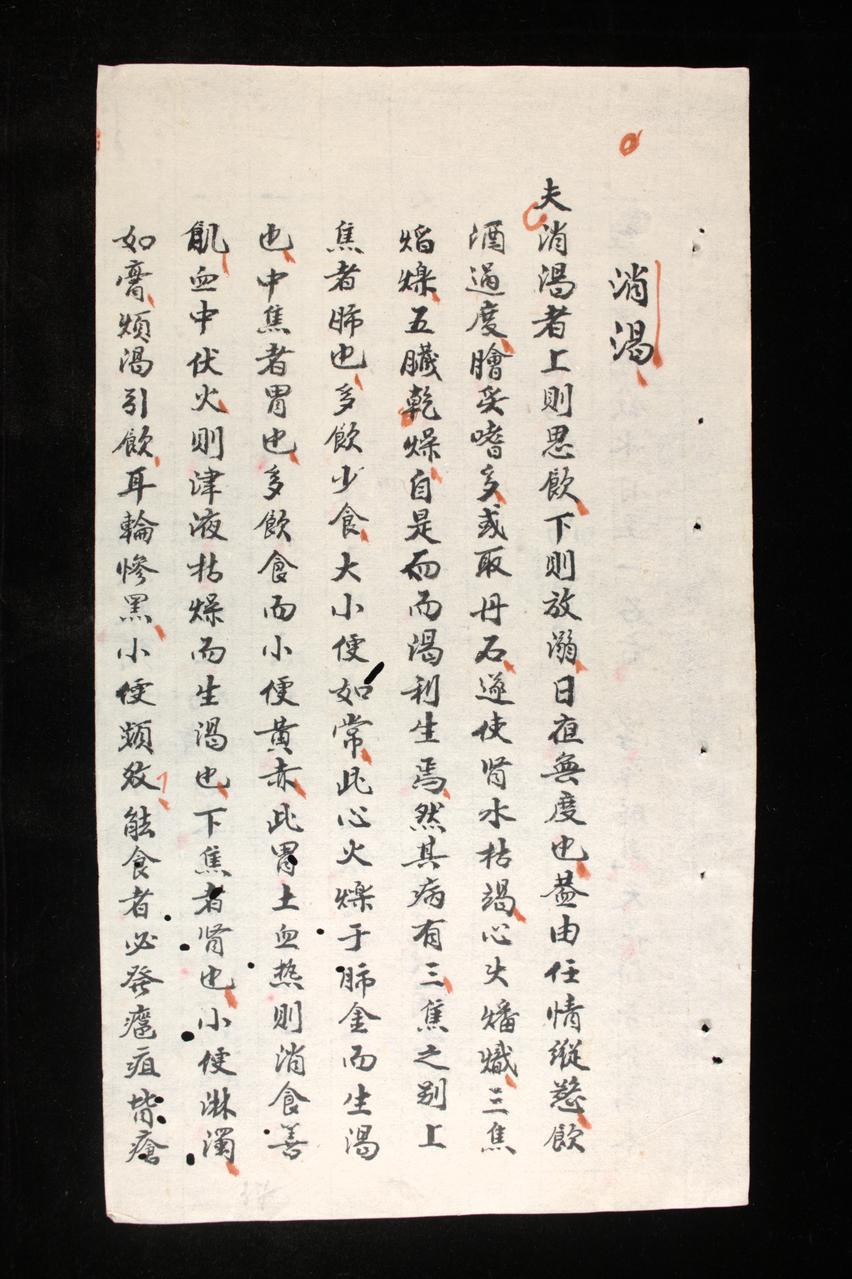 消渴
夫消渴者上則思飲下則放溺日夜無度也蓋由任情縱慾飲
酒過度膾炙嗜多或取丹石遂使肾水枯竭心火燔熾三焦
熖爍五臓乾燥自是而而渴利生焉然其病有三焦之别上
焦者肺也多飲少食大小便如常此心火爍于肺金而生渴
也中焦者胃也多飲食而小便黄赤此胃土血热則消食善
飢血中伏火則津液枯燥而生渴也下焦者肾也小便淋濁
如膏煩渴引飲耳輪慘黑小便頻数能食者必發癰疽背瘡